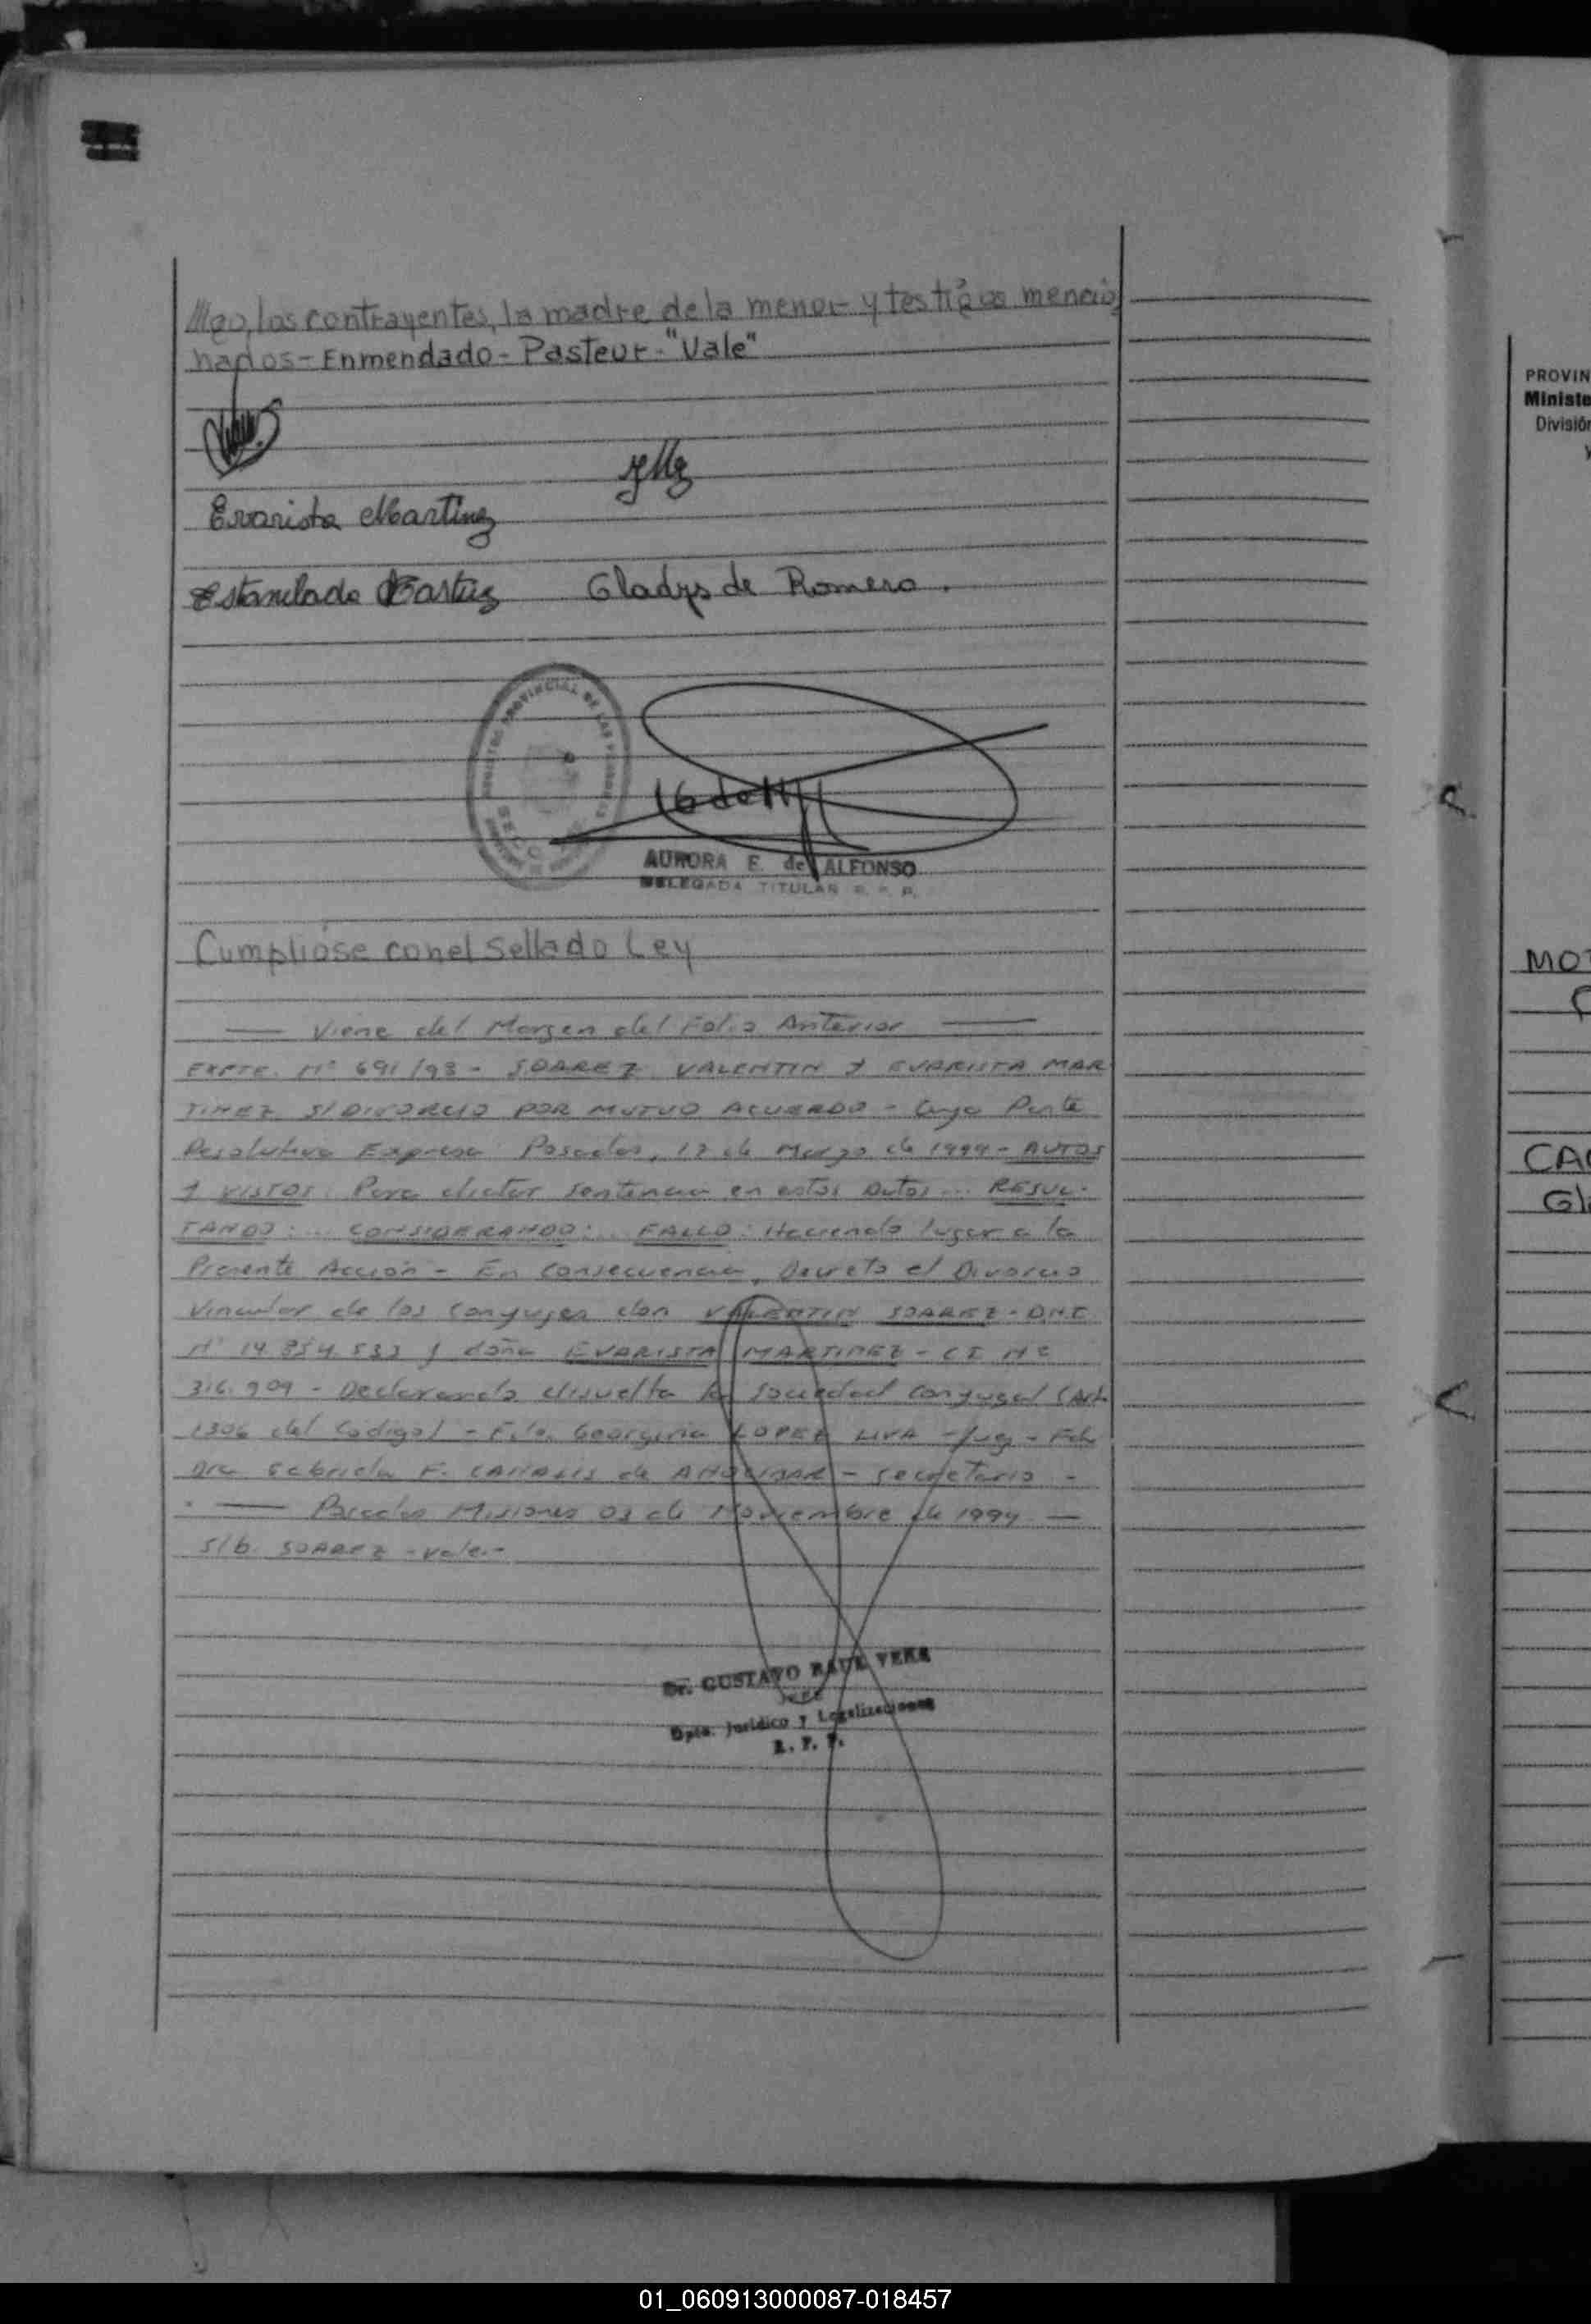 los contrayentes, la madre de la menor y testigos mencio
nados - Enmendado - Pasteur - "Vale"
Evarista Martinez
Gladys de Romero.
PROVINCIAL DE LAS PERSONAS
SELLO
AURORA E. de ALFONSO
DELEGADA TITULAR R. P. P.
Cumplióse con el sellado Ley
— Viene del Margen del Folio Anterior —
EXPTE. Nº 691/98 - SOAREZ VALENTIN Y EVARISTA MAR
TINEZ S/DIVORCIO POR MUTUO ACUERDO - Cuya Parte
Resolutiva Expresa: Posadas, 12 de Marzo de 1999 - AUTOS
Y VISTOS: Para dictar sentencia en estos Autos... RESUL-
TANDO:... CONSIDERANDO:... FALLO: Haciendo lugar a la
Presente Acción - En consecuencia, Decreto el Divorcio
Vincular de los conyuges don VALENTIN SOAREZ - D.N.I.
Nº 14.854.533 y doña EVARISTA MARTINEZ - C I Nº
316.909 - Declarando disuelta la sociedad conyugal (Art.
1306 del Codigo) - Fdo. Georgina LOPEZ LIVA - Juez - Fdo
Dra Gabriela F. de - Secretaria -
— Posadas Misiones 03 de Noviembre de 1999 —
S/b. SOAREZ - Vale.-
Dr. GUSTAVO RAUL VERA
JEFE
Dpto. Jurídico y Legalizaciones
R. P. P.
PROVIN
Ministe
División
MOT
CAC
Gl
01_060913000087-018457